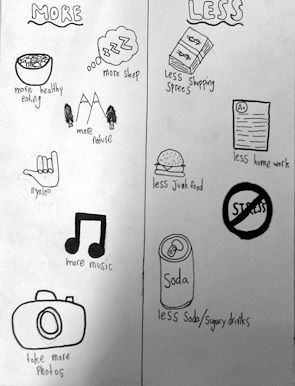 MORE
zzz
more sleep
more healthy
eating
more
nature
more music
take more
Photos
LESS
less Shopping
Sprees
A+
less homework
less Junk food
STRESS
Soda
less Soda/sugary drinks